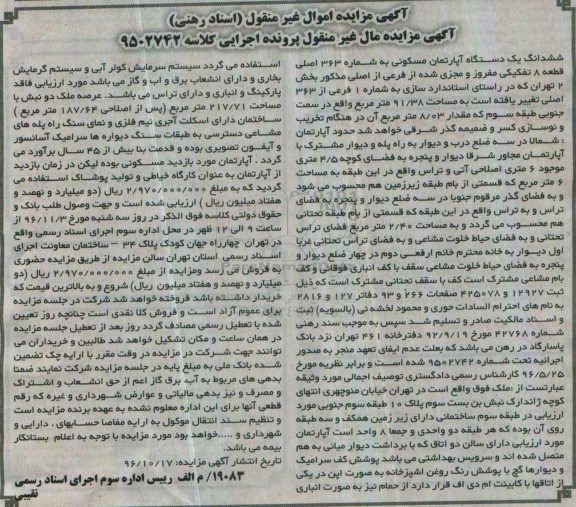 آگهی مزایده اموال غیر منقول (اسناد رهنی)
آگهی مزایده مال غیر منقول پرونده اجرایی کلاسه ۹۵۰۲۷۴۲
ششدانگ یک دستگاه آپارتمان مسکونی به شماره ۳۶۳ اصلی
قطعه ۸ تفکیکی مفروز و مجزی شده از فرعی از اصلی مذکور بخش
۲ تهران که در راستای استاندارد سازی به شماره ۱ فرعی از ۳۶۳
اصلی تغییر یافته است به مساحت ۹۱/۳۸ متر مربع واقع در سمت
جنوبی طبقه سوم که مقدار ۸/۰۳ متر مربع آن در هنگام تخریب
و نوسازی کسر و ضمیمه گذر شرقی خواهد شد حدود آپارتمان
: شمالا در سه ضلع درب و دیوار به راه پله و دیوار مشترک با
آپارتمان مجاور شرقا دیوار و پنجره به فضای کوچه ۴/۵ متری
موجود ۶ متری اصلاحی آتی و تراس واقع در این طبقه به مساحت
۶ متر مربع که قسمتی از بام طبقه زیرزمین هم محسوب می شود
و به فضای گذر مرقوم جنوبا در سه ضلع دیوار و پنجره به فضای
تراس و به تراس واقع در این طبقه که قسمتی از بام طبقه تحتانی
هم محسوب می گردد و به مساحت ۲/۴۰ متر مربع فضای تراس
تحتانی و به فضای حیاط خلوت مشاعی و به فضای تراس تحتانی غربا
اول دیوار به خانه محترم خانم ارفعی دوم در چهار ضلع دیوار و
پنجره به فضای حیاط خلوت مشاعی سقف با کف انباری فوقانی و کف
بام مشاعی مشترک است کف با سقف تحتانی مشترک است که ذیل
ثبت ۱۲۹۲۷ و ۴۲۵۰۷۸ صفحات ۲۶۶ و ۹۳ دفاتر ۱۲۷ و ۲۸۱۶
به نام های احترام السادات حوری و محمود لخشه نی (بالسویه) ثبت
و اسناد مالکیت صادر و تسلیم شد سپس به موجب سند رهنی
شماره ۴۲۷۶۸ مورخ ۹۲/۹/۱۹ دفترخانه ۴۶۱ تهران نزد بانک
پاسارگاد در رهن می باشد که بعلت عدم ایفای تعهد منجر به صدور
اجرائیه تحت شماره ۹۵۰۲۷۴۲ شده است و برابر نظریه مورخ
۹۶/۵/۲۵ کارشناس رسمی دادگستری توصیف اجمالی مورد وثیقه
عبارتست از :ملک فوق واقع است در تهران خیابان منوچهری انتهای
کوچه ژاندارک نبش بن بست سوم پلاک ۱۰ طبقه سوم جنوبی مورد
ارزیابی در طبقه سوم ساختمانی دارای زیر زمین همکف و سه طبقه
روی آن بوده که هر طبقه دو واحدی و جمعا ۸ واحد است آپارتمان
مورد ارزیابی دارای سالن دو اتاق که با برداشت دیوار میانی به هم
متصل شده اند و سرویس بهداشتی می باشد پوشش کف سرامیک
و دیوارها گچ با پوشش رنگ روغن اشپزخانه به صورت اپن در یکی
از اتاقها با کابینت ام دی اف قرار دارد از حمام نیز به صورت انباری
استفاده می گردد سیستم سرمایش کولر آبی و سیستم گرمایش
بخاری و دارای انشعاب برق و اب و گاز می باشد مورد ارزیابی فاقد
پارکینگ و انباری و دارای تراس می باشد. عرصه ملک دو نبش با
مساحت ۲۱۷/۷۱ متر مربع (پس از اصلاحی ۱۸۷/۶۴ متر مربع)
ساختمان دارای اسکلت آجری نیم فلزی و نمای سنگ راه پله های
مشاعی دسترسی به طبقات سنگ دیواره ها سرامیک آسانسور
و آیفون تصویری بوده و قدمت بنا بیش از ۴۵ سال برآورد می
گردد . آپارتمان مورد بازدید مسکونی بوده لیکن در زمان بازدید
از آپارتمان به عنوان کارگاه خیاطی و تولید پوشاک استفاده می
گردید که به مبلغ ۲/۹۷۰/۰۰۰/۰۰۰ ریال (دو میلیارد و نهصد و
هفتاد میلیون ریال ) ارزیابی شده است و جهت وصول طلب بانک و
حقوق دولتی کلاسه فوق الذکر در روز سه شنبه مورخ ۹۶/۱۱/۳ از
ساعت ۹ الی ۱۲ ظهر در محل اداره سوم اجرای اسناد رسمی واقع
در تهران چهارراه جهان کودک پلاک ۳۴ – ساختمان معاونت اجرای
اسناد رسمی استان تهران سالن مزایده از طریق مزایده حضوری
به فروش می رسد ومزایده از مبلغ ۲/۹۷۰/۰۰۰/۰۰۰ ریال (دو
میلیارد و نهصد و هفتاد میلیون ریال) شروع و به بالاترین قیمت که
خریدار داشته باشد فروخته خواهد شد شرکت در جلسه مزایده
برای عموم آزاد است و فروش کلا نقدی است چنانچه روز تعیین
شده با تعطیل رسمی مصادف گردد روز بعد از تعطیل جلسه مزایده
در همان ساعت و مکان تشکیل خواهد شد طالبین و خریداران می
توانند جهت شرکت در مزایده در وقت مقرر با ارایه چک تضمین
شده بانک ملی به مبلغ پایه در جلسه مزایده شرکت نمایند ضمنا
بدهی های مربوط به آب، برق گاز اعم از حق انشعاب و اشتراک
و مصرف و نیز بدهی مالیاتی و عوارض شهرداری و غیره که رقم
قطعی آنها برای این اداره معلوم نشده به عهده برنده مزایده است
و تنظیم سند انتقال موکول به ارایه مفاصا حسابهای ، دارایی و
شهرداری و .....خواهد بود مورد مزایده با توجه به اعلام بستانکار
بیمه می باشد.
تاریخ انتشار آگهی مزایده: ۹۶/۱۰/۱۷
۱۹۰۸۳/ م الف رییس اداره سوم اجرای اسناد رسمی
نقیبی